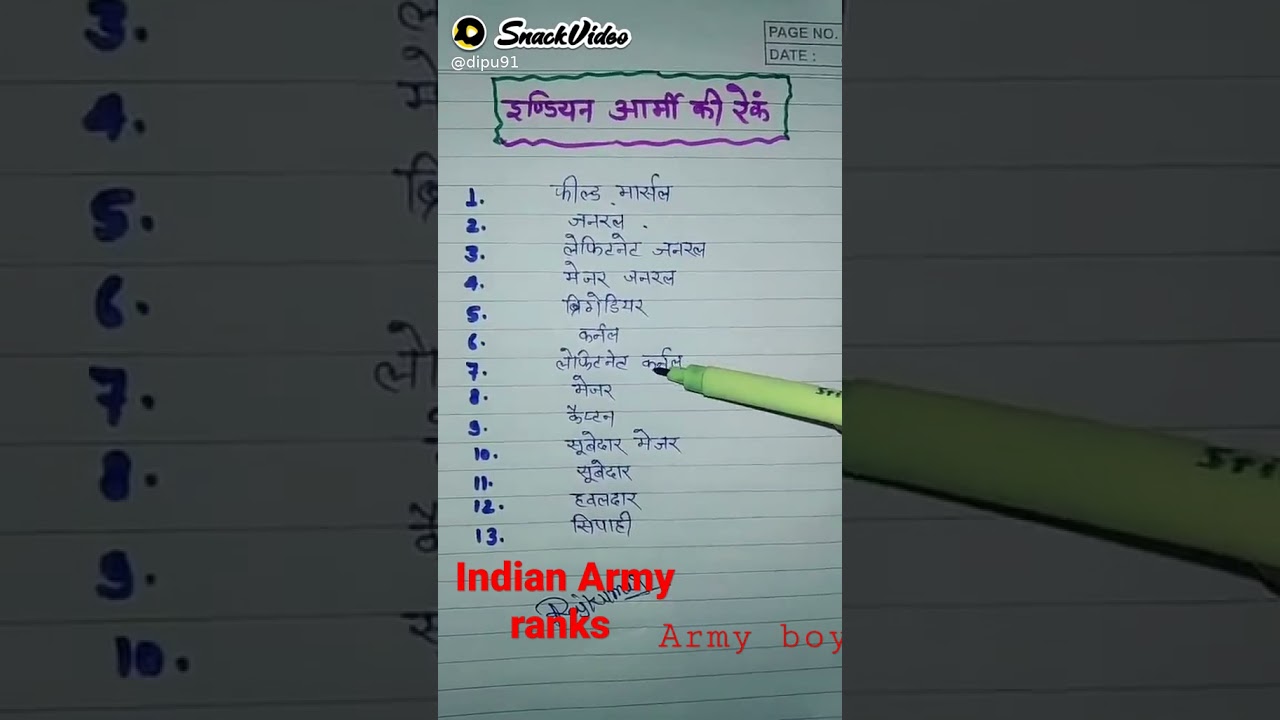 SnackVideo
@dipu91
PAGE NO.
DATE :
इण्डियन आर्मी की रेंक
1. फील्ड मार्सल
2. जनरल
3. लेफिटनेट जनरल
4. मेजर जनरल
5. ब्रिगेडियर
6. कर्नल
7. लेफिटनेट कर्नल
8. मेजर
9. कैप्टन
10. सूबेदार मेजर
11. सूबेदार
12. हवलदार
13. सिपाही
Indian Army
ranks
Army boy
3.
4.
5.
6.
7.
8.
9.
10.